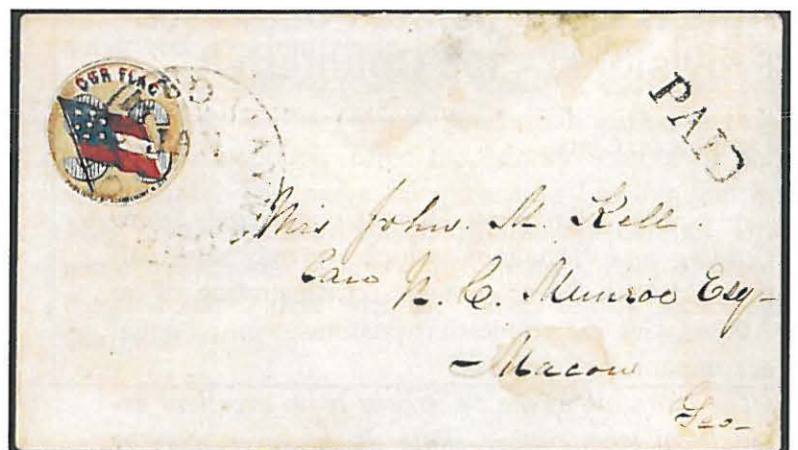 OUR FLAG
PAID
Mrs John. M. Kell.
Care N. C. Munroe Esq-
Macon
Geo-